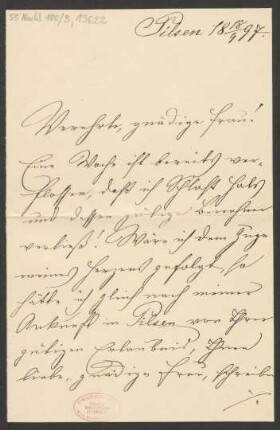 55 Nachl 100/B, 13622
Pilsen 18 18/9 97.
Verehrte, gnädige Frau!
Eine Woche ist bereits ver-
flossen, daß ich Schloß
und dessen gütige Bewohner
verließ! Wäre ich dem Zuge
meines Herzens gefolgt, so
hätte ich gleich nach meiner
Ankunft in Pilsen von Ihrer
gütigen Erlaubniß, Ihnen
liebe, gnädige Frau, schreiben